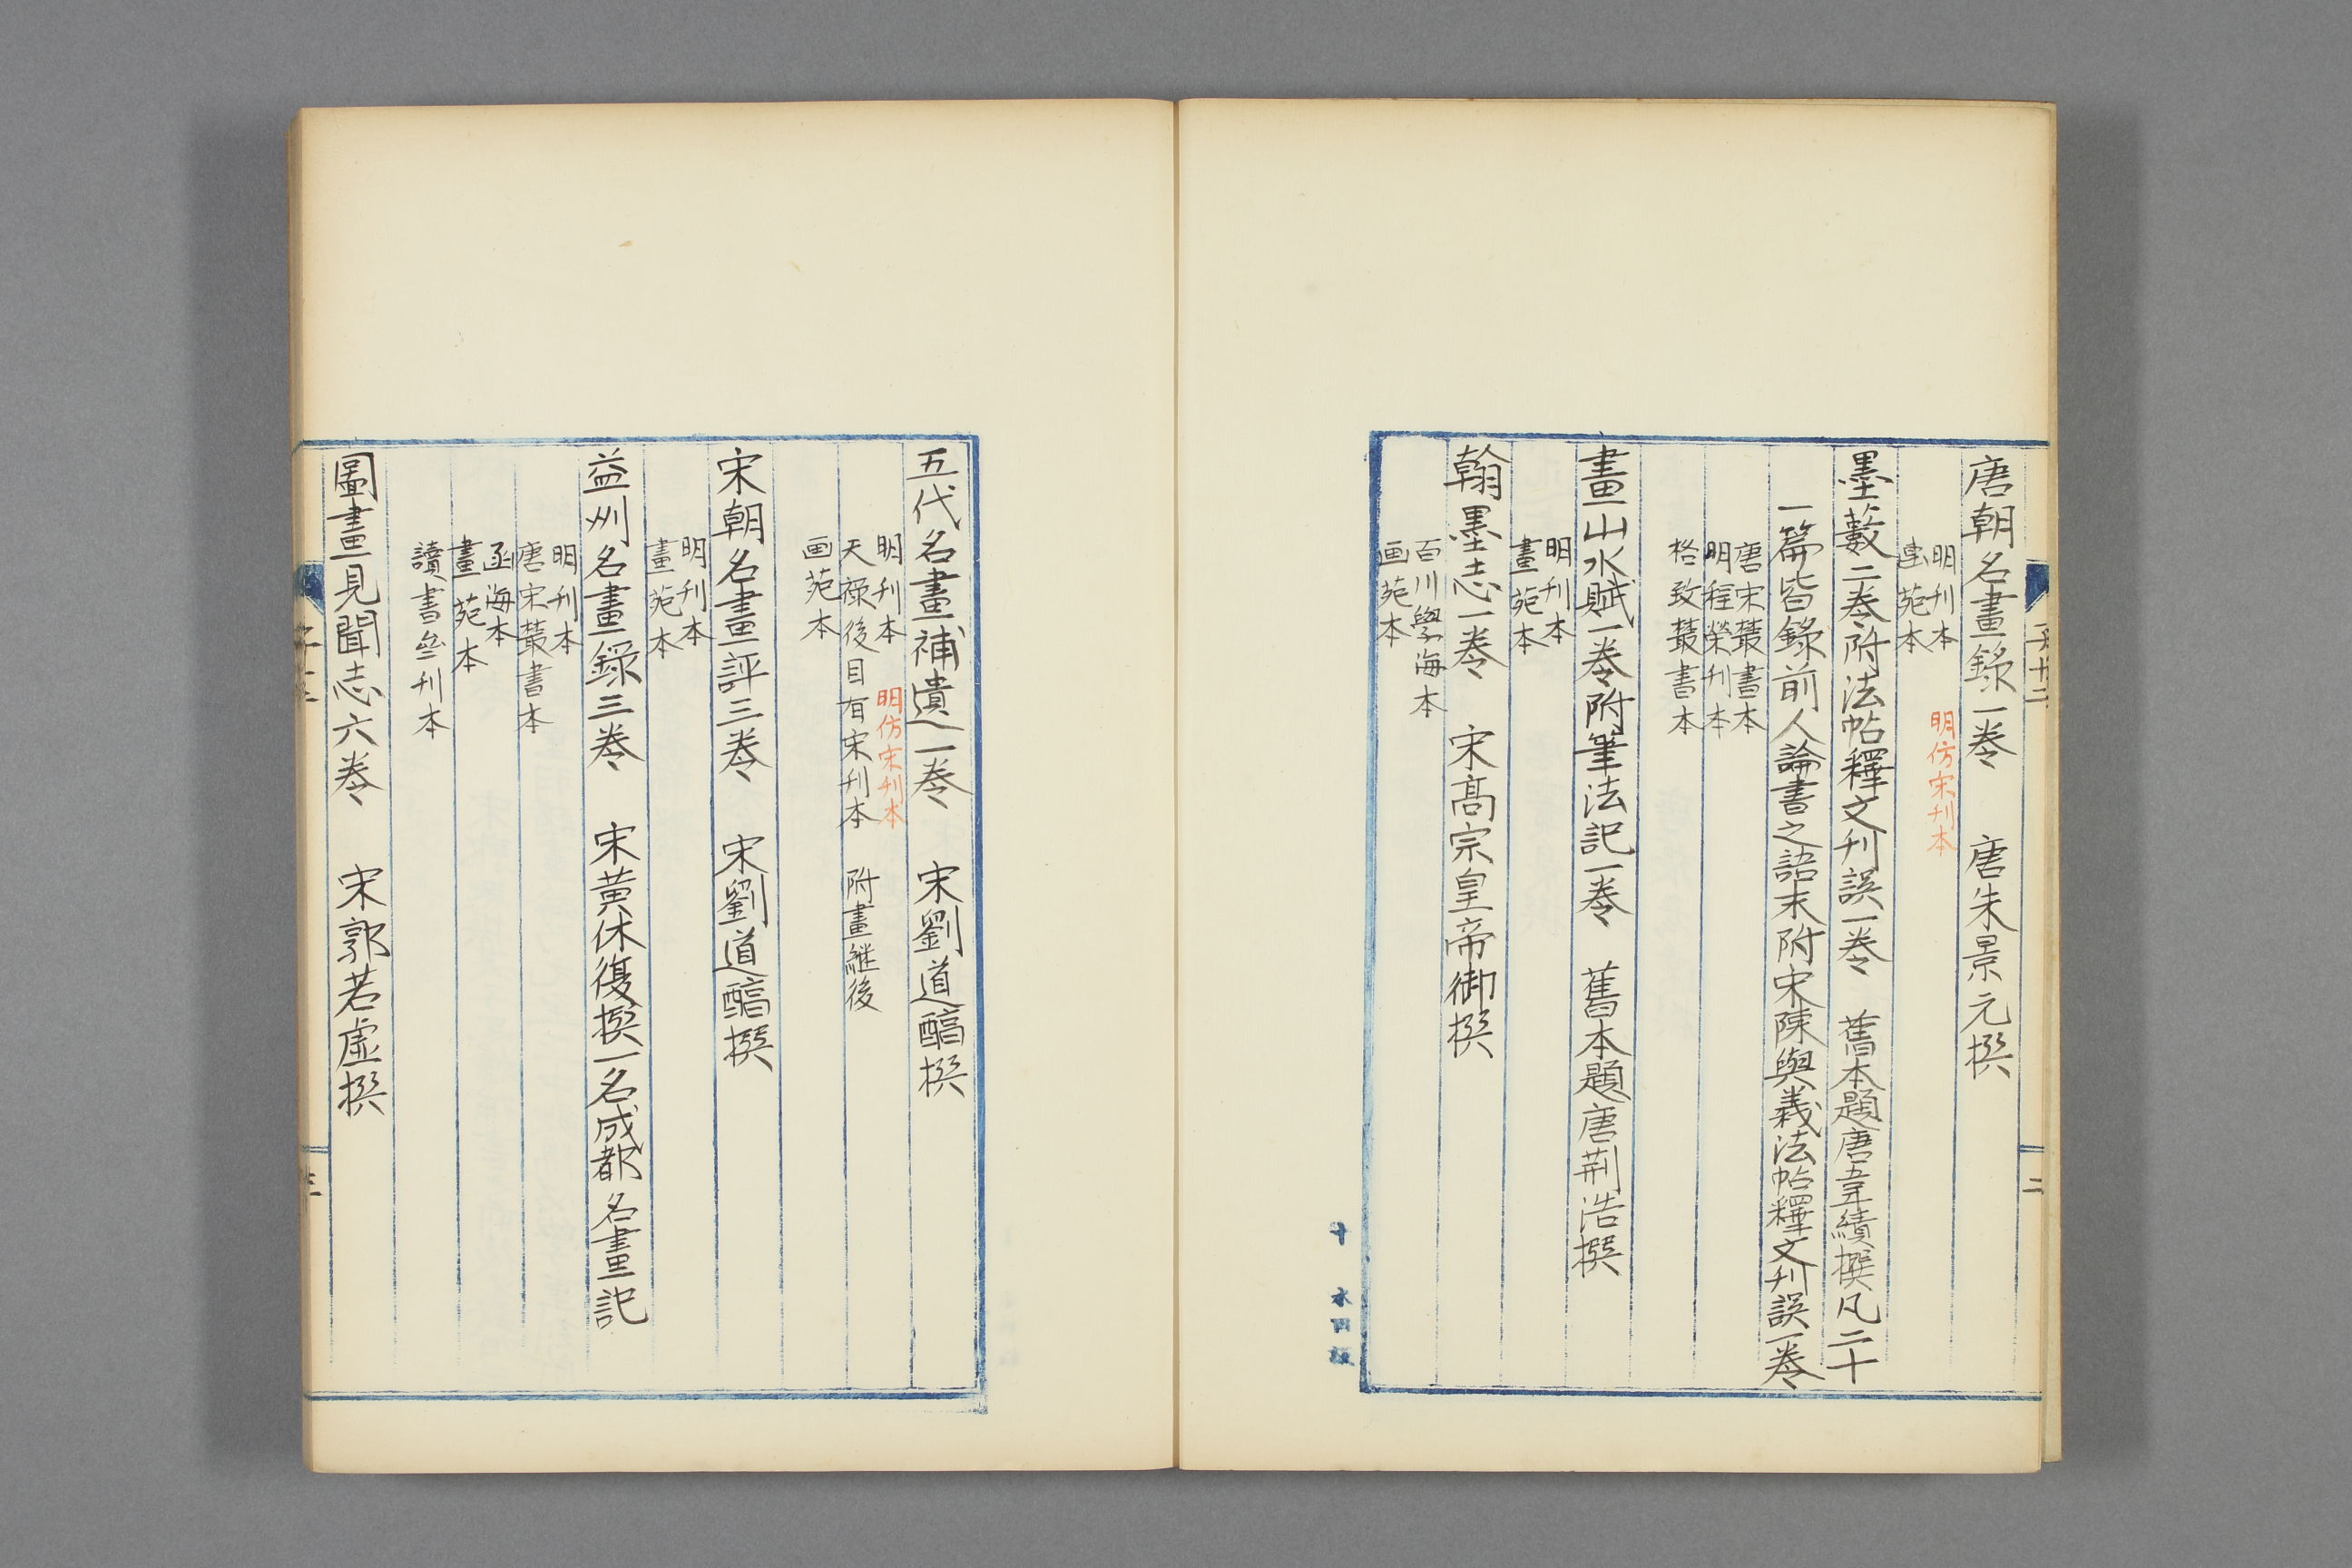 唐朝名畫錄一卷　唐朱景元撰
明刊本　明仿宋刊本
畫苑本
墨藪二卷附法帖釋文刊誤一卷　舊本題唐韋續撰凡二十
一篇皆錄前人論書之語末附宋陳與義法帖釋文刊誤一卷
唐宋叢書本
明程榮刊本
格致叢書本
畫山水賦一卷附筆法記一卷　舊本題唐荊浩撰
明刊本
畫苑本
翰墨志一卷　宋高宗皇帝御撰
百川學海本
画苑本
五代名畫補遺一卷　宋劉道醇撰
明刊本　明仿宋刊本
天祿後目有宋刊本　附畫繼後
画苑本
宋朝名畫評三卷　宋劉道醇撰
明刊本
畫苑本
益州名畫錄三卷　宋黃休復撰一名成都名畫記
明刊本
唐宋叢書本
函海本
畫苑本
讀書叅刊本
圖畫見聞志六卷　宋郭若虛撰